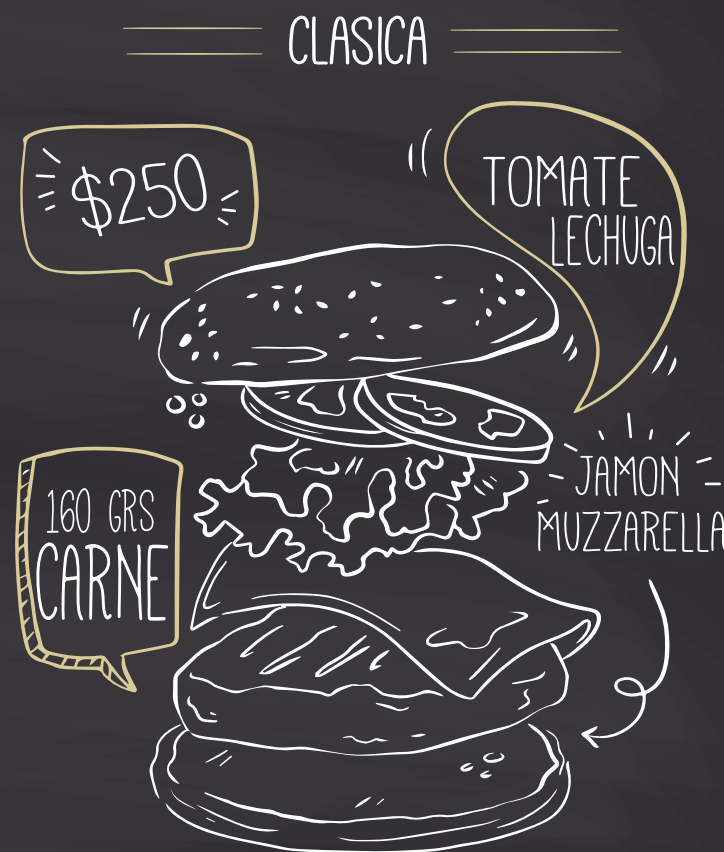 CLASICA
$250
TOMATE
LECHUGA
160 GRS
CARNE
JAMON
MUZZARELLA